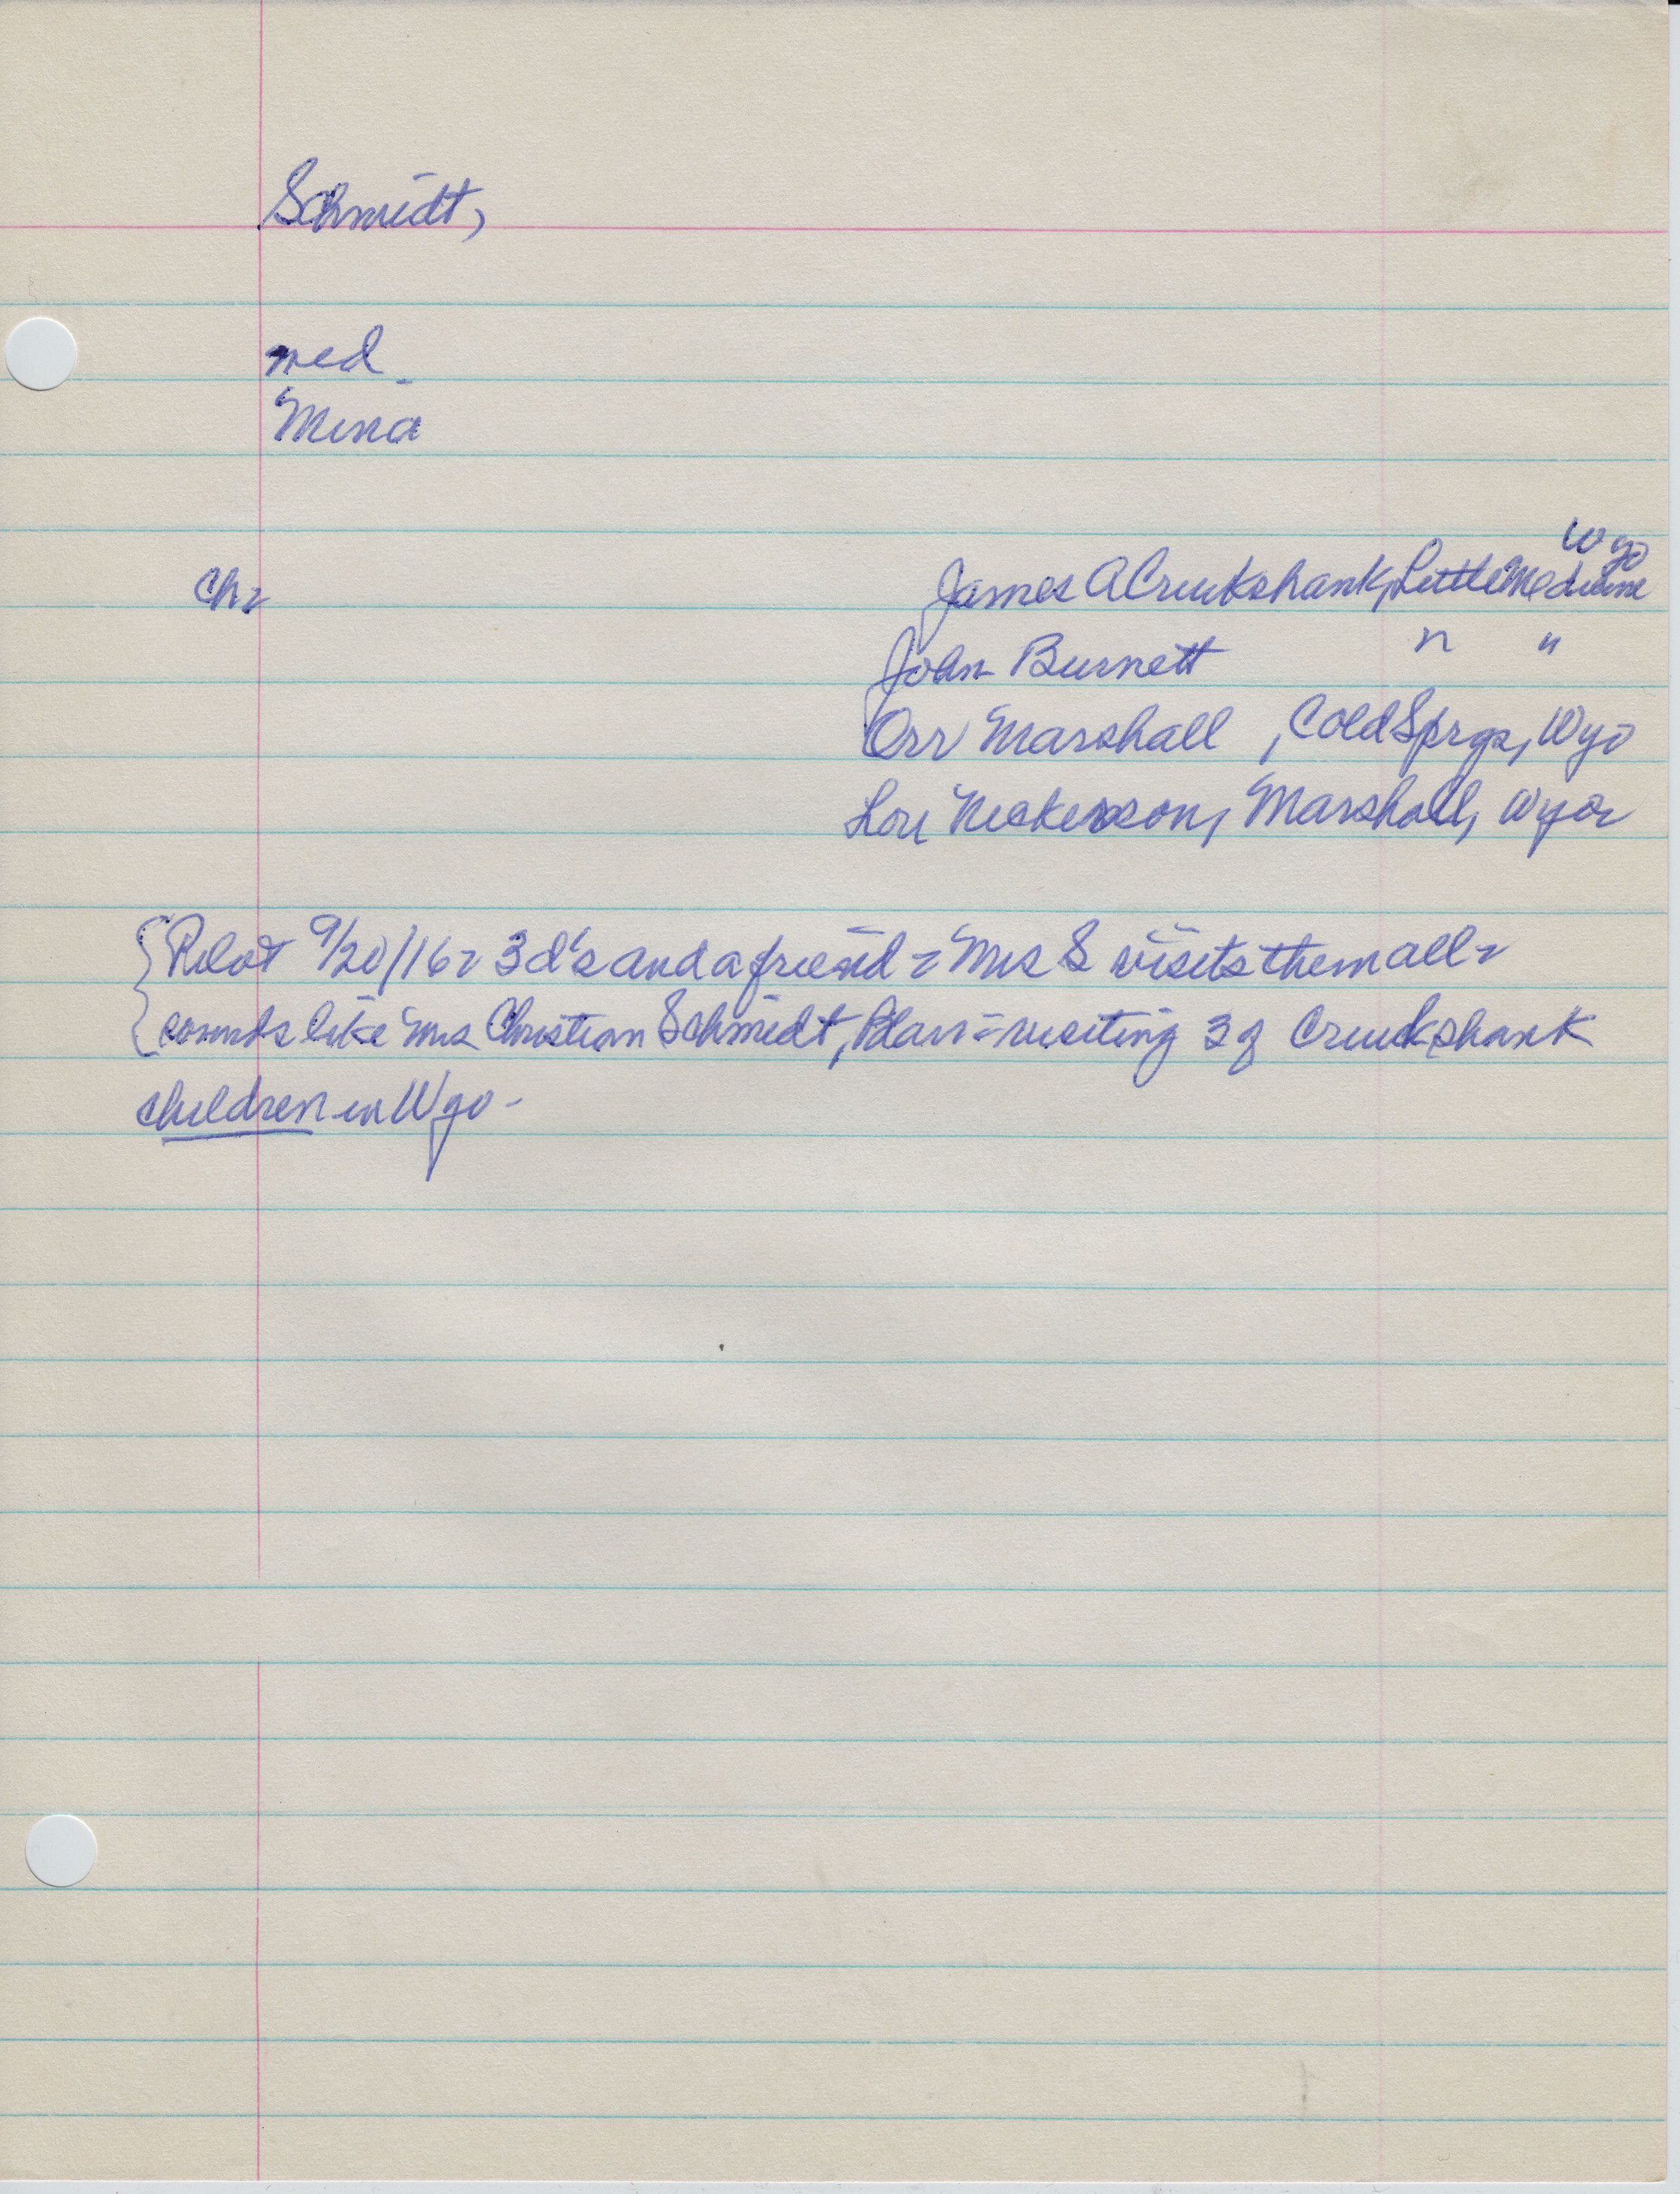 Schmidt,
med
Mina
Wyo
Ch= James A Cruikshank, Little Medicine
John Burnett " "
Orr Marshall, Cold Sprgs, Wyo
Lou Nickerson, Marshall, Wyo=
{Pilot 9/20/16= 3 d's and a friend = Mrs S visits them all=
{sounds like Mrs Christian Schmidt, Blair = visiting 3 of Cruikshank
children in Wyo-